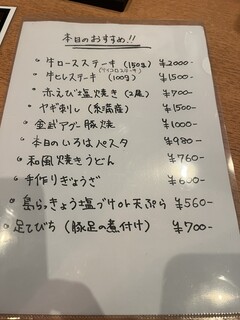 本日のおすすめ!!
・牛ロースステーキ (150g) ¥2000-
(サイコロステーキ)
・牛ヒレステーキ (100g) ¥1500-
・赤えび塩焼き (2尾) ¥700-
・ヤギ刺し (糸満産) ¥1500-
・金武アグー豚焼 ¥1000-
・本日のいろはパスタ ¥980-
・和風焼きうどん ¥760-
・手作りぎょうざ ¥600-
・島らっきょう塩づけor天ぷら ¥560-
・足てびち (豚足の煮付け) ¥700-